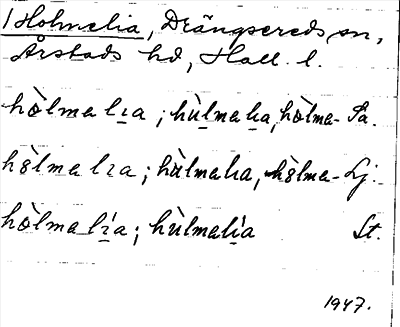 1 Holmelia, Drängsereds sn,
Årstads hd, Hall. l.
hòlmalıa; hùlmalıa, hòlma- Sa.
hòlmalıa; hùlmalıa, hòlma- Lj.
hòlmalı́a; hùlmalı́a St.
1947.